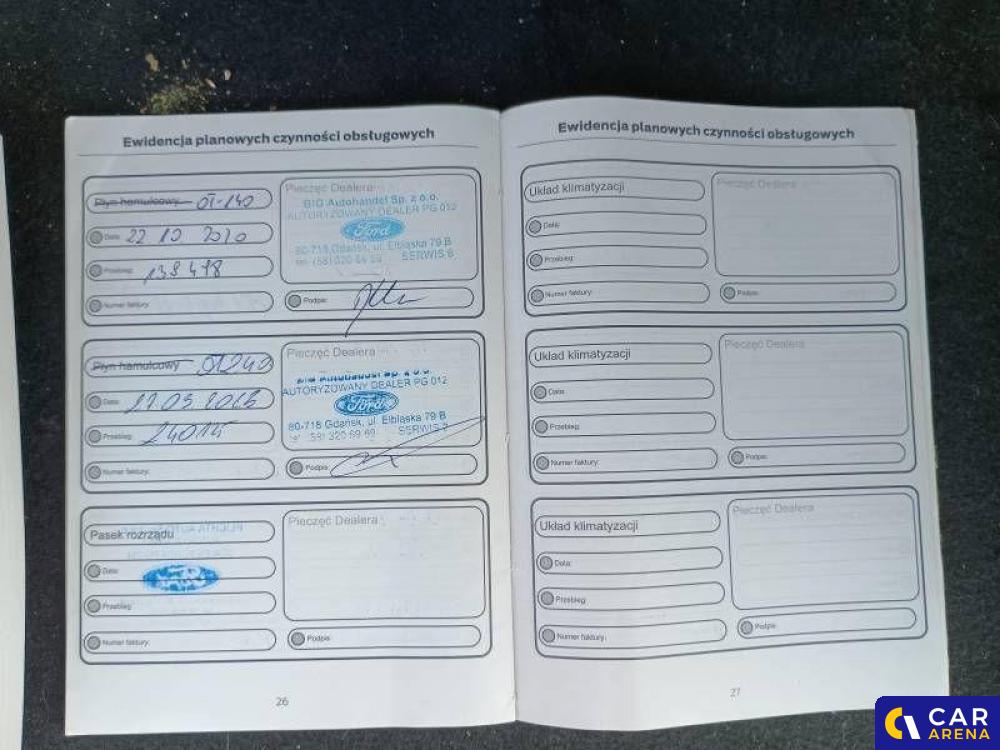 Ewidencja planowych czynności obsługowych
Płyn hamulcowy OT-140
Data: 22 10 2020
Przebieg: 139478
Numer faktury:
Pieczęć Dealera
BIG Autohandel Sp. z o.o.
AUTORYZOWANY DEALER PG 012
Ford
80-718 Gdańsk, ul. Elbląska 79 B
tel. (58) 320 69 69 SERWIS 6
Podpis:
Płyn hamulcowy
Data:
Przebieg:
Numer faktury:
Pieczęć Dealera
BIG Autohandel Sp. z o.o.
AUTORYZOWANY DEALER PG 012
Ford
80-718 Gdańsk, ul. Elbląska 79 B
tel. (58) 320 69 69 SERWIS
Podpis:
Pasek rozrządu
Data:
Przebieg:
Numer faktury:
Pieczęć Dealera
Podpis:
26
Ewidencja planowych czynności obsługowych
Układ klimatyzacji
Data:
Przebieg:
Numer faktury:
Pieczęć Dealera
Podpis:
Układ klimatyzacji
Data:
Przebieg:
Numer faktury:
Pieczęć Dealera
Podpis:
Układ klimatyzacji
Data:
Przebieg:
Numer faktury:
Pieczęć Dealera
Podpis:
27
CAR
ARENA